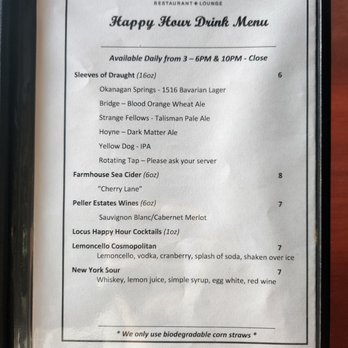 RESTAURANT + LOUNGE
Happy Hour Drink Menu
Available Daily from 3 – 6PM & 10PM - Close
Sleeves of Draught (16oz) 6
Okanagan Springs - 1516 Bavarian Lager
Bridge – Blood Orange Wheat Ale
Strange Fellows - Talisman Pale Ale
Hoyne – Dark Matter Ale
Yellow Dog - IPA
Rotating Tap – Please ask your server
Farmhouse Sea Cider (6oz) 8
"Cherry Lane"
Peller Estates Wines (6oz) 7
Sauvignon Blanc/Cabernet Merlot
Locus Happy Hour Cocktails (1oz)
Lemoncello Cosmopolitan 7
Lemoncello, vodka, cranberry, splash of soda, shaken over ice
New York Sour 7
Whiskey, lemon juice, simple syrup, egg white, red wine
* We only use biodegradable corn straws *